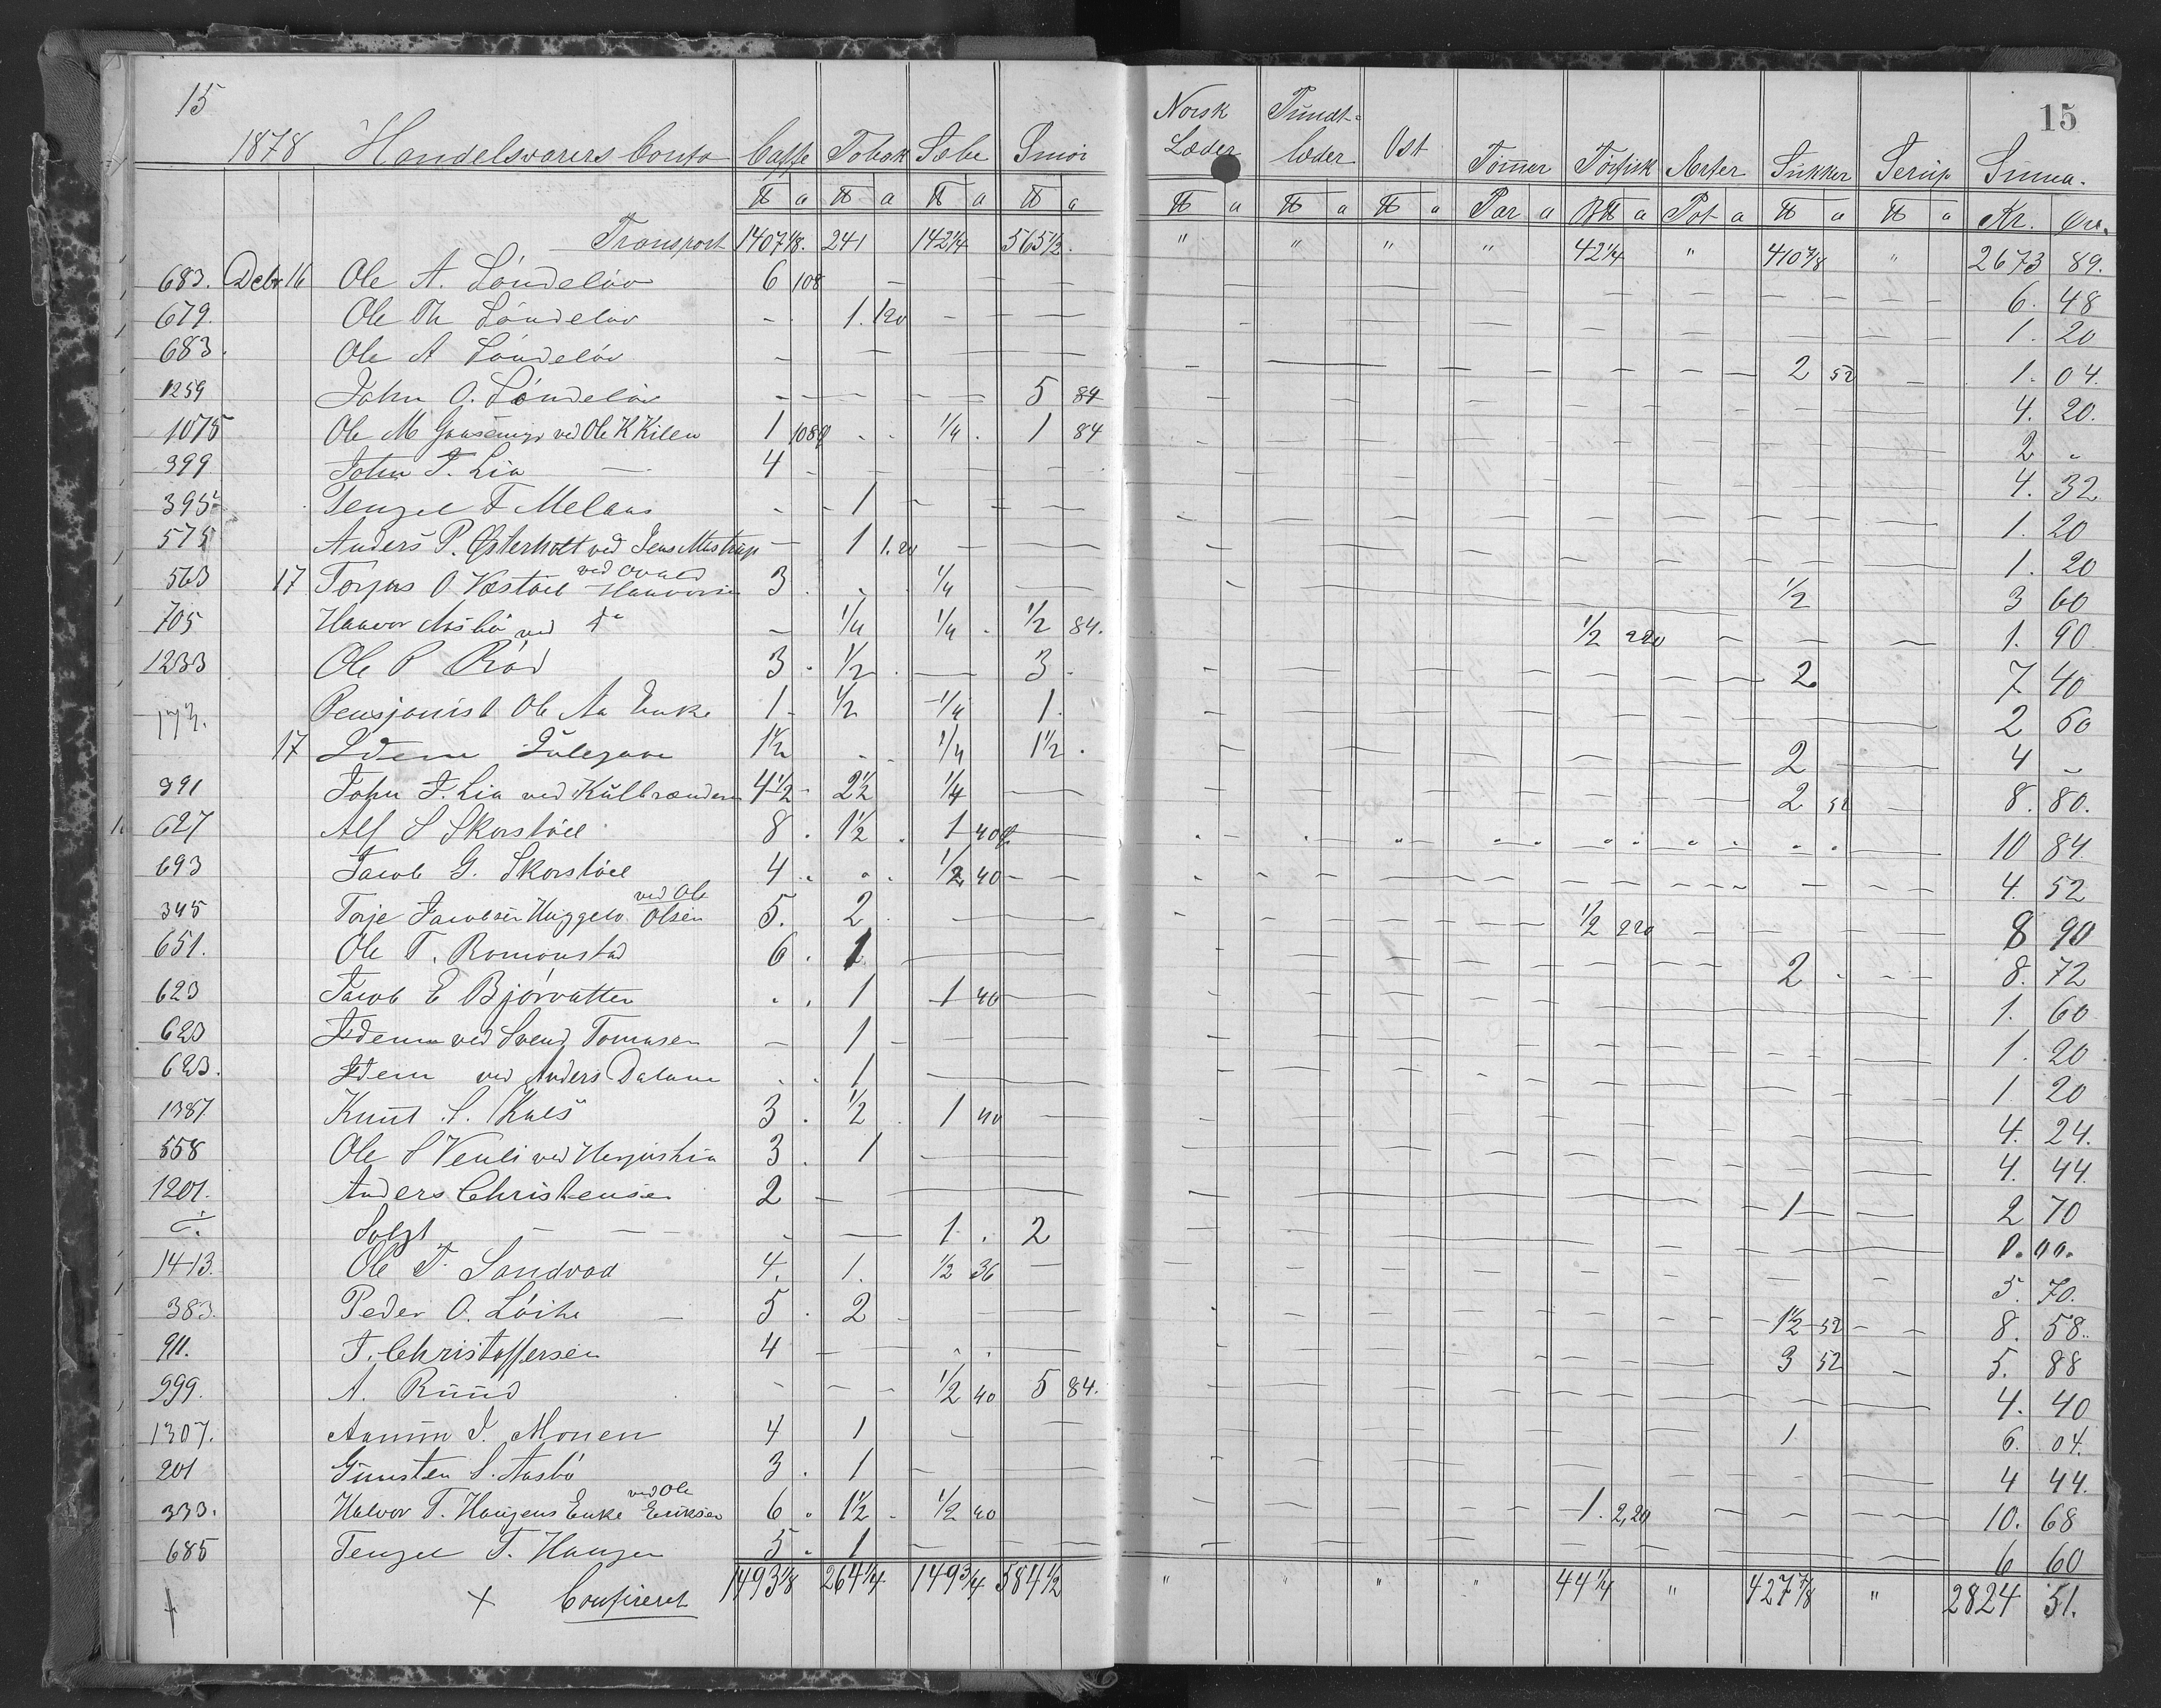 15
15
1878 Handelsvarers Conto Caffe Tobak Sæbe Smør Norsk Læder Pundt-læder Ost Tømmer Tørfisk Ærter Sukker Serup Summa.
℔ a ℔ a ℔ a ℔ a ℔ a ℔ a ℔ a Par a B℔ a Pot a ℔ a ℔ a Kr. Øre.
Transport 1407 1/8. 241 142 1/4 565 1/2. " " " " 42 1/4 " 410 3/8 " 2673 89.
683. Decbr 16 Ole A. Løndeløv 6 108 6. 48
679. Ole Th Løndeløv 1. 120 1. 20
683. Ole A Løndeløv 2 52 1. 04.
1259 John O. Løndeløv 5 84 4. 20.
1075 Ole M ved Ole K Kilen 1 108 1/4 1 84 2 "
399. John T. Lia 4 4. 32
395 Tengel T Melaas 1 1. 20
575 Anders P. Østerholt ved Jens Mestrup 1 1.20 1. 20
563 17 Torjus O Væstøel ved Halvorsen 3 1/4 1/2 3 60
705 Haavor Aasbø ved do 1/4 1/4 1/2 84. 1/2 220 1. 90
1233 Ole P Rød 3 1/2 3 2 7 40
Pensjonist Ole Aa Enke 1 1/2 1/4 1. 2 60
17 Idem Julegave 1 1/2 1/4 1 1/2 2 4 "
391 John T. Lia ved Kulbrandsen 4 1/2 2 1/2 1/4 2 52 8. 80.
627 Alf S Skorstøel 8 1 1/2 1 40 10 84.
693 Jacob G. Skorstøel 4 " 1/2 40 4. 52
345 Torje Jacobsen Huggelv ved Ole Olsen 5. 2 1/2 220 8 90
651. Ole T. Romonstad 6 1 2 8. 72
623 Jacob E Bjørvatten 1 1 40 1. 60
623 Idem ved Svend Tomasen 1 1. 20
623. Idem ved Anders Dalane 1 1 20
1387 Knut S. Kals 3 1/2 1 40 4. 24.
558 Ole S Venli ved 3 1 4. 44.
1201. Anders Christensen 2 1 2 70
Solgt 1 2
1413. Ole T. Sandvad 4. 1. 1/2 36 5. 70.
383. Peder O. Løite 5 2 1 1/2 52 8. 58.
911. T. Christoffersen 4 3 52 5. 88
999. A. Ruud 1/2 40 5 84. 4. 40
1307. Aanun J. Monen 4 1 1 6. 04.
201 Gunsten S. Aasbø 3. 1 4 44.
333. Halvor T. Haugens Enke ved Ole Eriksen 6 1 1/2 1/2 40 1. 2,20 10. 68
685 Tengel T. Haugen 5. 1 6 60
+ Confireret 1493 1/8 264 1/4 149 3/4 584 1/2 " " " " 44 1/4 " 427 7/8 " 2824 51.